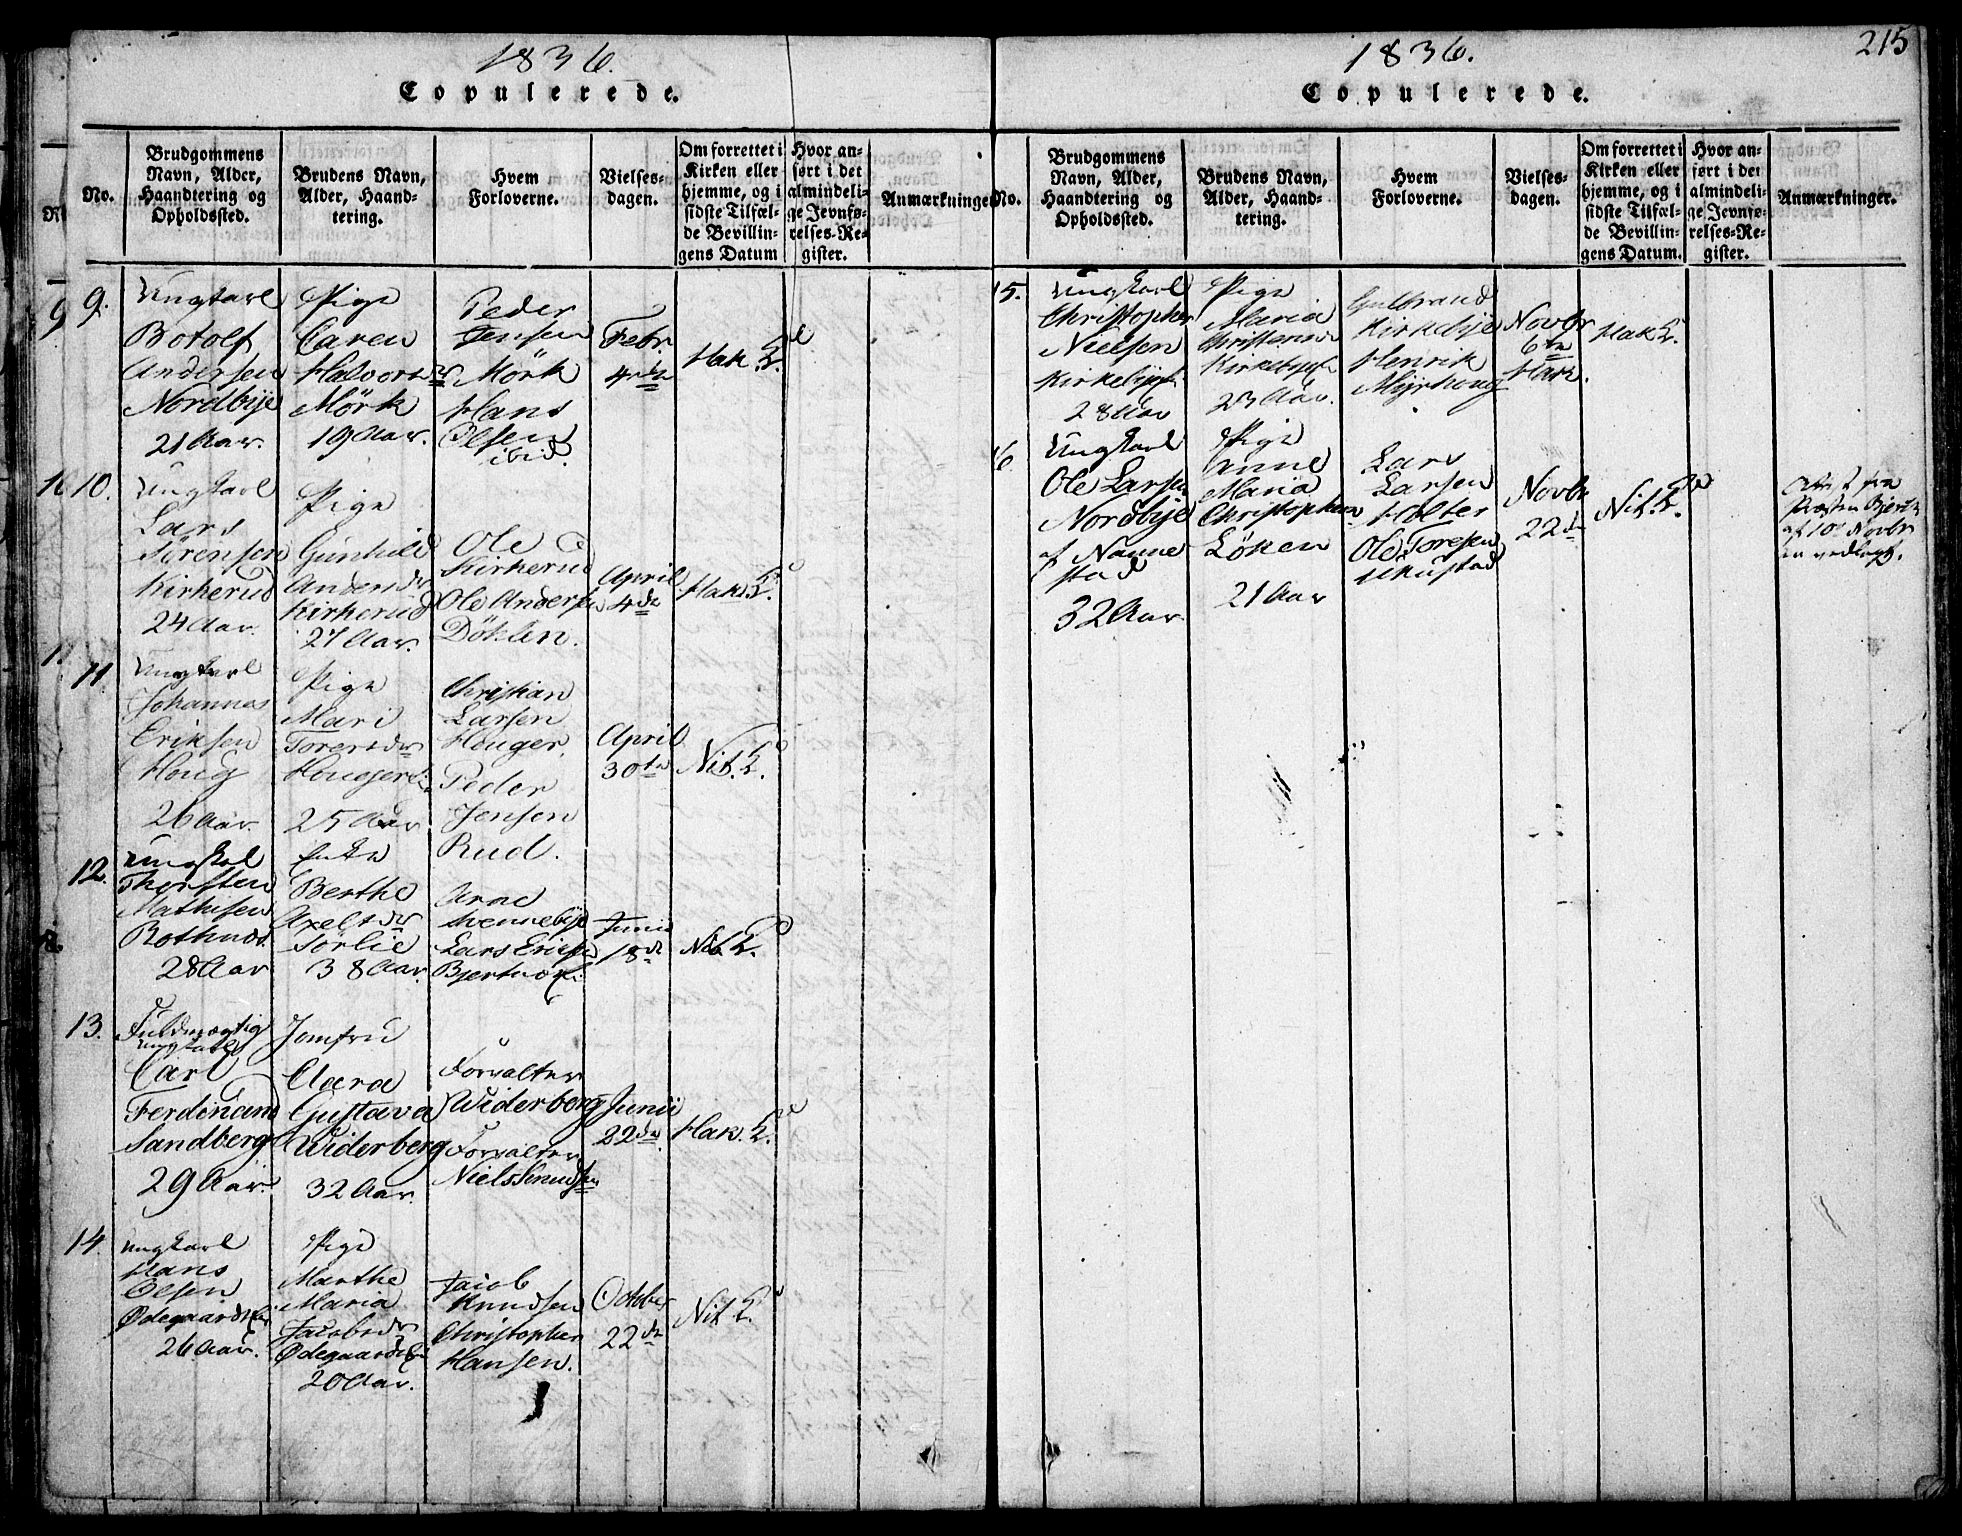 1836.
Copulerede.
No.
Brudgommens
Navn, Alder,
Haandtering og
Opholdssted.
Brudens Navn,
Alder, Haand-
tering.
Hvem
Forloverne.
Vielses-
dagen.
Om forrettet i
Kirken eller
hjemme, og i
sidste Tilfæl-
de Bevillin-
gens Datum
Hvor an-
ført i det
almindeli-
ge Jevnfø-
relses-Re-
gister.
Anmærkninger
9.
Ungkarl
Botolf
Andersen
Nordbye
21 Aar.
Pige
Caren
Halvorsdr
Mörk
19 Aar.
Peder
Jensen
Mörk
Hans
Olsen
ibid.
Febr.
4de
Hak. K.
10.
Ungkarl
Lars
Sörensen
Kirkerud
24 Aar.
Pige
Gunhild
Andersdr
Kirkerud
27 Aar.
Ole
Kirkerud
Ole Andersen
Döhlen.
April
4de
Hak. K.
11
Ungkarl
Johannes
Eriksen
Houg
26 Aar.
Pige
Mari
Toresdr
25 Aar
Christian
Larsen
Houger.
Peder
Jensen
Rud.
April
30te
Nit. K.
12.
Thorsten
Mathisen
28 Aar
Enke
Berthe
Axelsdr
Törlie
38 Aar.
Arne
Lars Ericsen
Junii
18de
Nit. K.
13.
Fuldmægtig
Ungkarl
Carl
Ferdinand
Sandberg
29 Aar.
Jomfru
Clara
Gustava
Widerberg
32 Aar.
Forvalter
Widerberg
Forvalter
Junii
22de
Hak. K.
14
Ungkarl
Hans
Olsen
26 Aar.
Pige
Marthe
Maria
Jacobsdr
20 Aar.
Jacob
Knudsen
Christopher
Hansen.
October
22de
Nit. K.
1836.
215
Copulerede.
No.
Brudgommens
Navn, Alder,
Haandtering og
Opholdssted.
Brudens Navn,
Alder, Haand-
tering.
Hvem
Forloverne.
Vielses-
dagen.
Om forrettet i
Kirken eller
hjemme, og i
sidste Tilfæl-
de Bevillin-
gens Datum.
Hvor an-
ført i det
almindeli-
ge Jevnfø-
relses-Re-
gister.
Anmærkninger.
15.
Ungkarl
Christopher
Nielsen
28 Aar
Pige
Maria
23 Aar.
Gulbrand
Kirkebye
Henrik
Myrhoug
Novbr
6te
Hak.
Hak K.
6
Ungkarl
Ole Larsen
Nordbye
af Nanne
stad
32 Aar
Pige
Anne
Maria
Löken
21 Aar
Lars
Larsen
Holter
Ole Toresen
Novbr
22de
Nit. K.
Attest fra
Præsten
af 10de Novbr
er vedlagt.